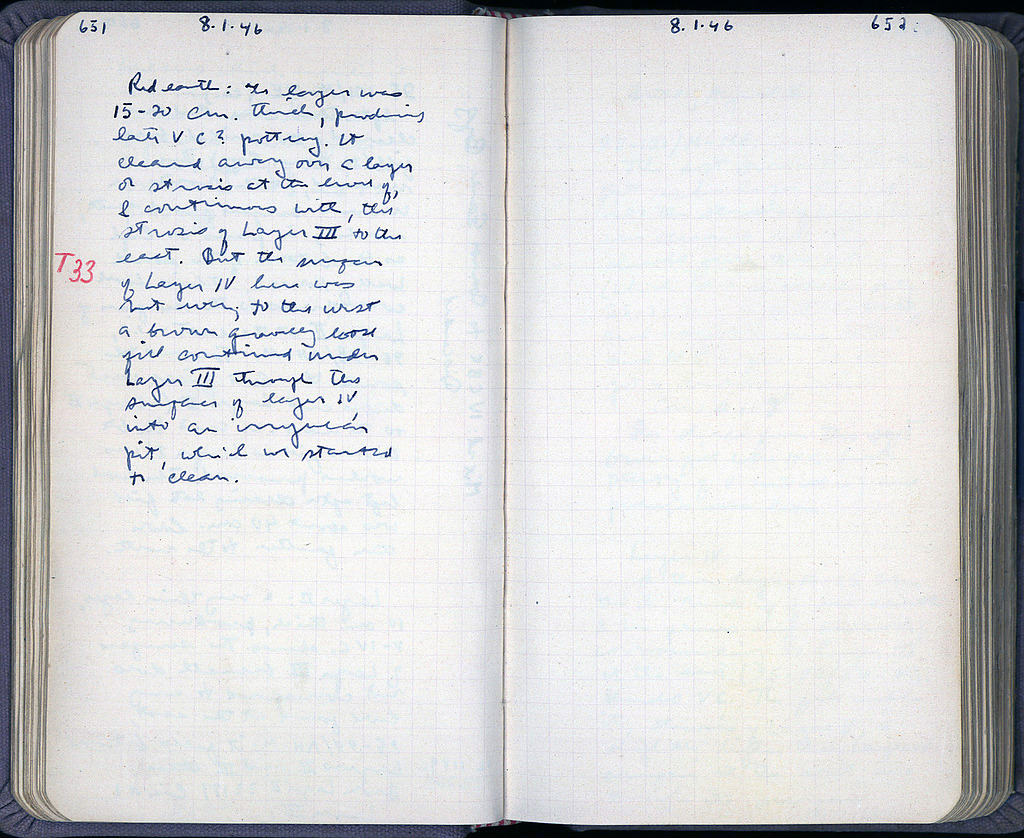 651
8.1.46
Red earth: this layer was
15-20 cm. thick, producing
late V C? pottery. It
cleared away over a layer
or strosis at the level of,
& continuous with, the
strosis of Layer III to the
east. But the surface
T33
of Layer IV here was
not even; to the west
a brown gravelly loose
fill continued under
Layer III through the
surface of layer IV
into an irregular
pit, which we started
to clean.
8.1.46
652